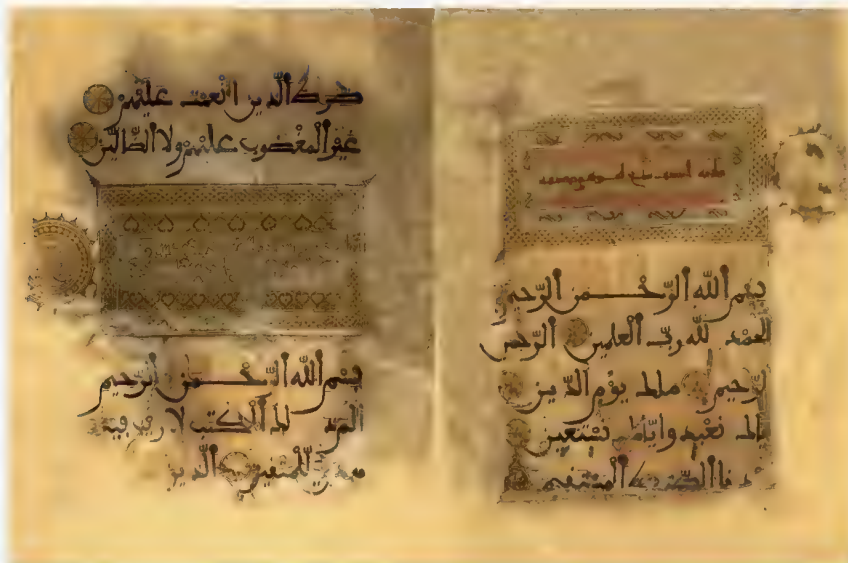 بِسْمِ ٱللَّهِ ٱلرَّحْمَٰنِ ٱلرَّحِيمِ
ٱلْحَمْدُ لِلَّهِ رَبِّ ٱلْعَٰلَمِينَ ٱلرَّحْمٰنِ
ٱلرَّحِيمِ مَٰلِكِ يَوْمِ ٱلدِّينِ
نَعْبُدُ وَإِيَّاكَ نَسْتَعِينُ
ٱلْمُسْتَقِيمَ
صِرَٰطَ ٱلَّذِينَ أَنْعَمْتَ عَلَيْهِمْ
غَيْرِ ٱلْمَغْضُوبِ عَلَيْهِمْ وَلَا ٱلضَّآلِّينَ
بِسْمِ ٱللَّهِ ٱلرَّحْمَٰنِ ٱلرَّحِيمِ
الٓمٓ ذَٰلِكَ ٱلْكِتَٰبُ لَا رَيْبَ فِيهِ
هُدًى لِّلْمُتَّقِينَ ٱلَّذِينَ